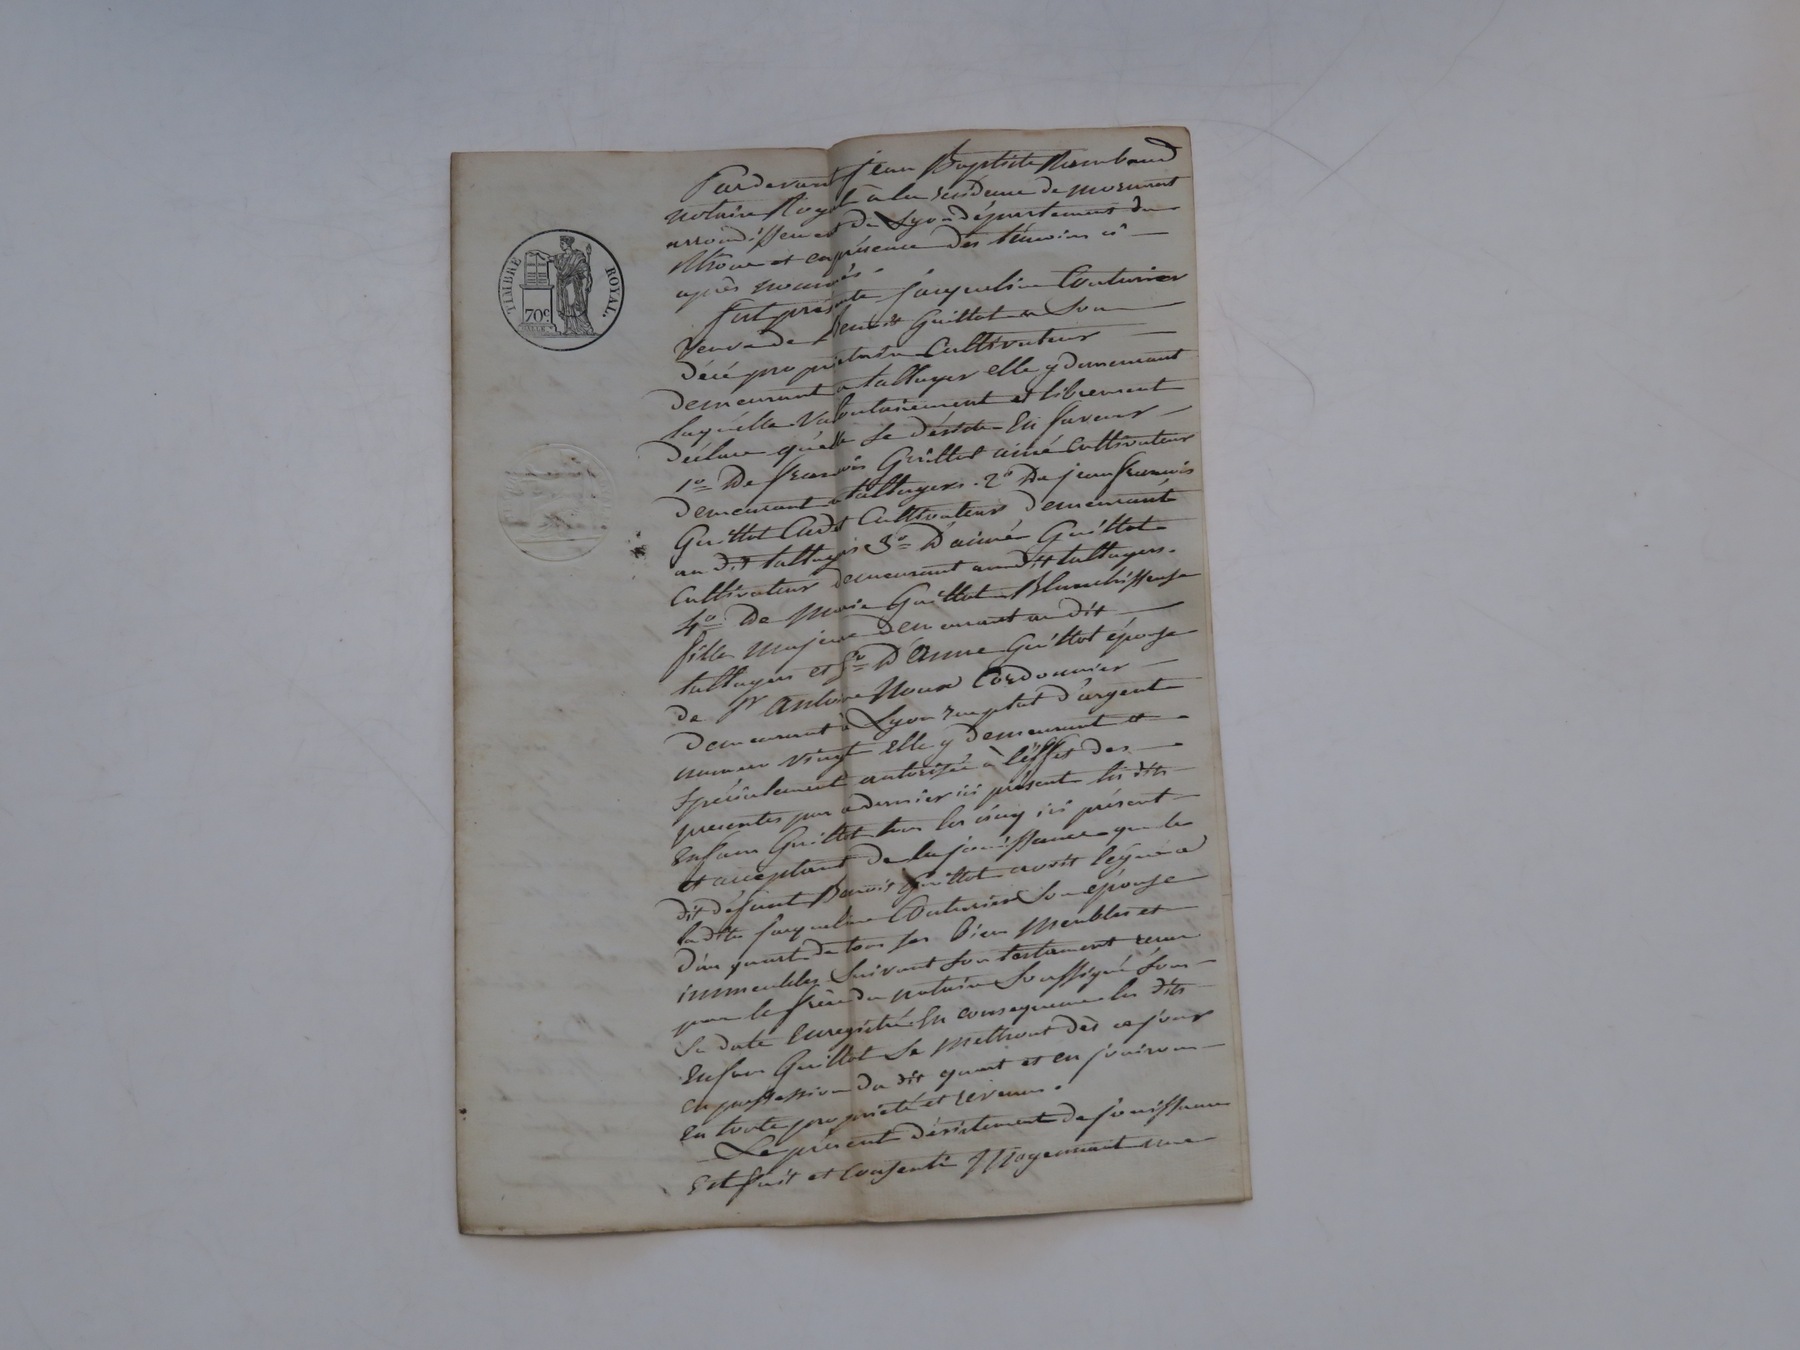 TIMBRE ROYAL.
70c
Pardevant Jean Baptiste Rambaud
notaire Royal à la residence de mornant
arrondissement de Lyon département du
Rhone et en présence des témoins ci
après nommés.
fut présente Jacqueline Couturier
Veuve de Benoit Guillot en Son
décé propriétaire Cultivateur
demeurant a talluyer elle y demeurant
laquelle Volontairement et librement
déclare quelle Se désiste En faveur
1o De francois Guillot ainé Cultivateur
demeurant a talluyers. 2o De jean francois
Guillot Cadet Cultivateur demeurant
au dit talluyers 3o D'aimé Guillot
Cultivateur demeurant au dit talluyers.
4o De Marie Guillot Blanchisseuse
fille majeure demeurant au dit
talluyers et 5o D'Anne Guillot épouse
de Sr Antoine Roux Cordonnier
demeurant à Lyon rue plat d'argent
numero vingt elle y demeurant et
Spécialement autorisée à l'effet des
presentes par ce dernier ici présent les dits
Enfans Guillot tous les cinq ici présent
et acceptant De la jouissance que le
dit défunt Benoit Guillot avoit légué a
la dite Jacqueline Couturier Son épouse
D'un quart de tous ses bien Meubles et
immeubles Suivant Son testament recu
par le frère du notaire Soussigné Sous
Sa date Enregistré En consequence les dits
Enfans Guillot Se mettront dès ce jour
en possession du dit quart et en jouiront
en toute propriété et revenus.
Le présent désistement de jouissance
Est fait et Consenti Moyennant une